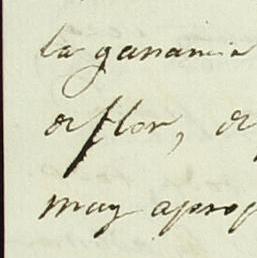 la ganancia
o flor, o
muy aprop